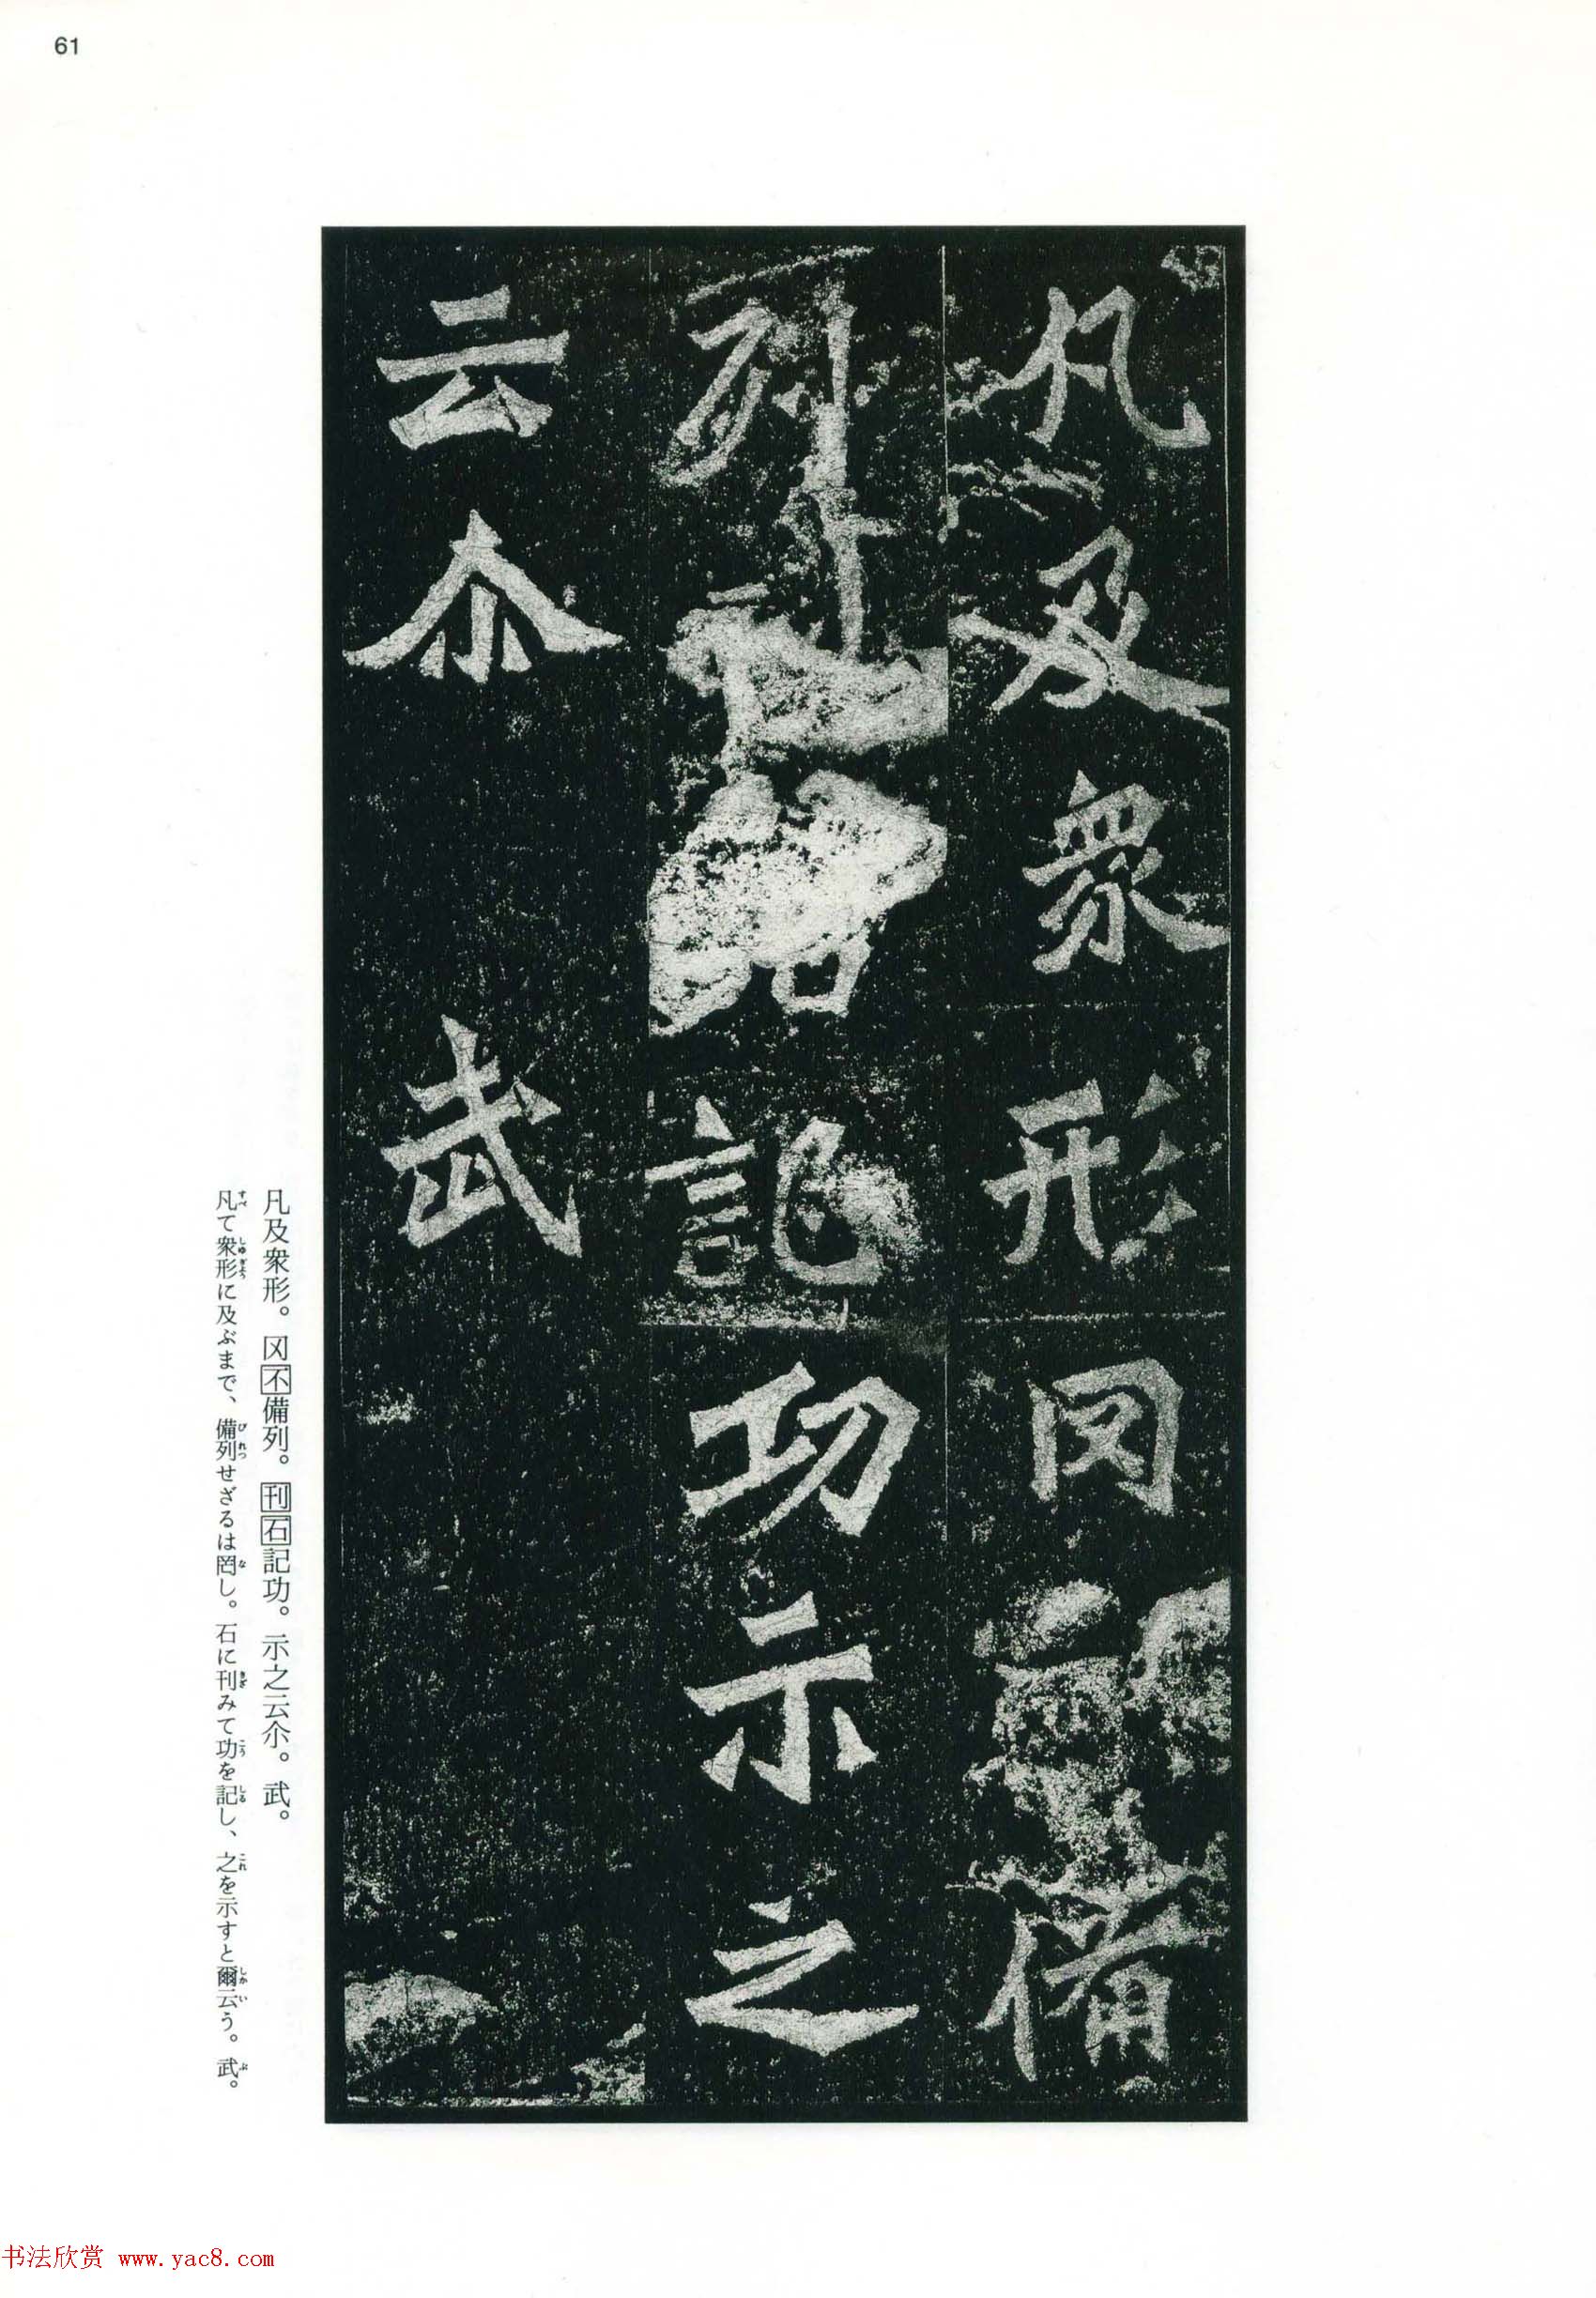 61
凡及衆形罔不備
列刊石記功示之
云尒 武
凡及衆形。罔不備列。刊石記功。示之云尒。武。
凡て衆形に及ぶまで、備列せざるは罔し。石に刊みて功を記し、之を示すと爾云う。武。
书法欣赏 www.yac8.com